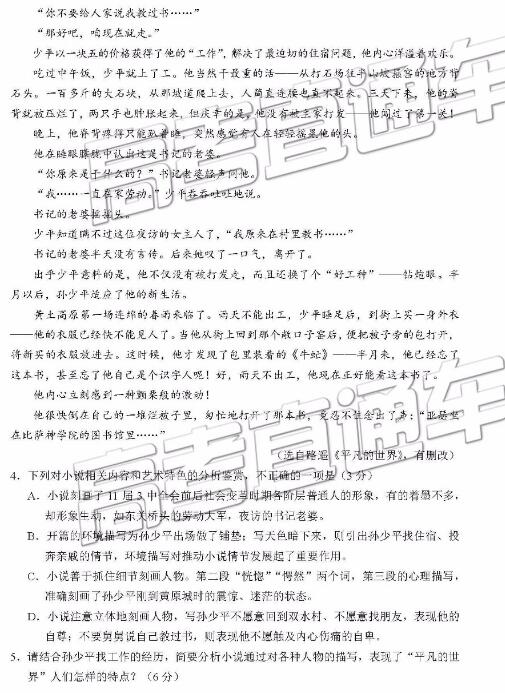 “你不要给人家说我教过书……”
“那好吧，咱现在就走。”
少平以一块五的价格获得了他的“工作”，解决了最迫切的住宿问题，他内心洋溢着欢乐。
吃过中午饭，少平就上了工。他当然干最重的活——从打石场往半山坡箍窑的地方背
石头。一百多斤的大石块，从那坡道爬上去，人简直连腰也直不起来。三天下来，他的脊
背就被压烂了，两只手也肿胀起来，但庆幸的是，他没有被主家打发——他闯过了第一关！
晚上，他脊背疼得只能趴着睡，突然感觉有人在轻轻摇晃他的头。
他在睡眼朦胧中认出这是书记的老婆。
“你原来是干什么的？”书记老婆轻声问他。
“我……一直在家劳动。”少平吞吞吐吐地说。
书记的老婆摇摇头。
少平知道瞒不过这位夜访的女主人了，“我原来在村里教书……”
书记的老婆半天没有言传。后来他叹了一口气，离开了。
出乎少平意料的是，他不仅没有被打发走，而且还换了个“好工种”——钻炮眼。半
月以后，孙少平适应了他的新生活。
黄土高原第一场连绵的春雨来临了。雨天不能出工，少平睡足后，到街上买一身外衣
——他的衣服已经快不能见人了。当他从街上回到那个敞口子窑后，便把被子旁的包打开，
将新买的衣服放进去。这时候，他才发现了包里装着的《牛虻》——半月来，他已经忘了
这本书，甚至忘了他自己是个识字人呢！好，雨天不出工，他现在正好能看这本书了。
他内心立刻感到一种颤栗般的激动！
他很快倒在自己的一堆烂被子里，匆忙地打开了那本书，竟忍不住念出了声：“亚瑟坐
在比萨神学院的图书馆里……”
（选自路遥《平凡的世界》，有删改）
4．下列对小说相关内容和艺术特色的分析鉴赏，不正确的一项是（3 分）
A．小说刻画了 11 届 3 中全会前后社会变革时期各阶层普通人的形象，有的着墨不多，
却形象生动，如东关桥头的劳动大军，夜访的书记老婆。
B．开篇的环境描写为孙少平出场做了铺垫；写天色暗下来，则引出孙少平找住宿、投
奔亲戚的情节，环境描写对推动小说情节发展起了重要作用。
C．小说善于抓住细节刻画人物。第二段“恍惚”“愕然”两个词，第三段的心理描写，
准确刻画了孙少平刚到黄原城时的震惊、迷茫的状态。
D．小说注意立体地刻画人物，写孙少平不愿意回到双水村、不愿意找朋友，表现他的
自尊；不要舅舅说自己教过书，则表现他不愿触及内心伤痛的自卑。
5．请结合孙少平找工作的经历，简要分析小说通过对各种人物的描写，表现了“平凡的世
界”人们怎样的特点？（6 分）
高考直通车
高考直通车
高考直通车